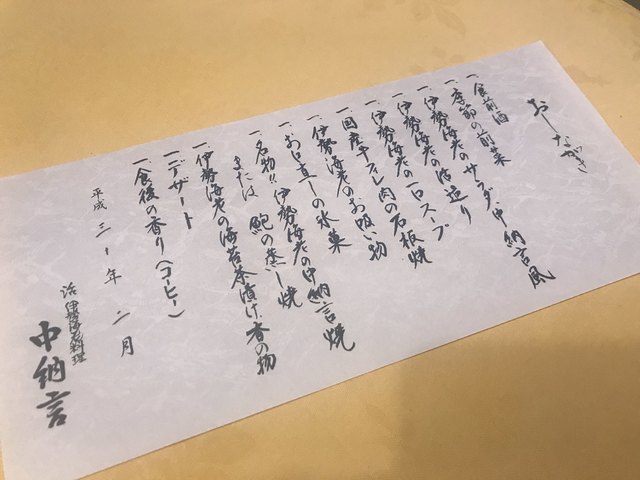 おしながき
一、食前酒
一、季節の前菜
一、伊勢海老のサラダ、中納言風
一、伊勢海老の活造り
一、伊勢海老の一口スープ
一、国産牛フィレ肉の石板焼
一、伊勢海老のお吸い物
一、お口直しの氷菓
一、名物!! 伊勢海老の中納言焼
または 鮑の蒸し焼
一、伊勢海老の海苔茶漬け、香の物
一、デザート
一、食後の香り(コーヒー)
平成三十年二月
活伊勢海老料理
中納言